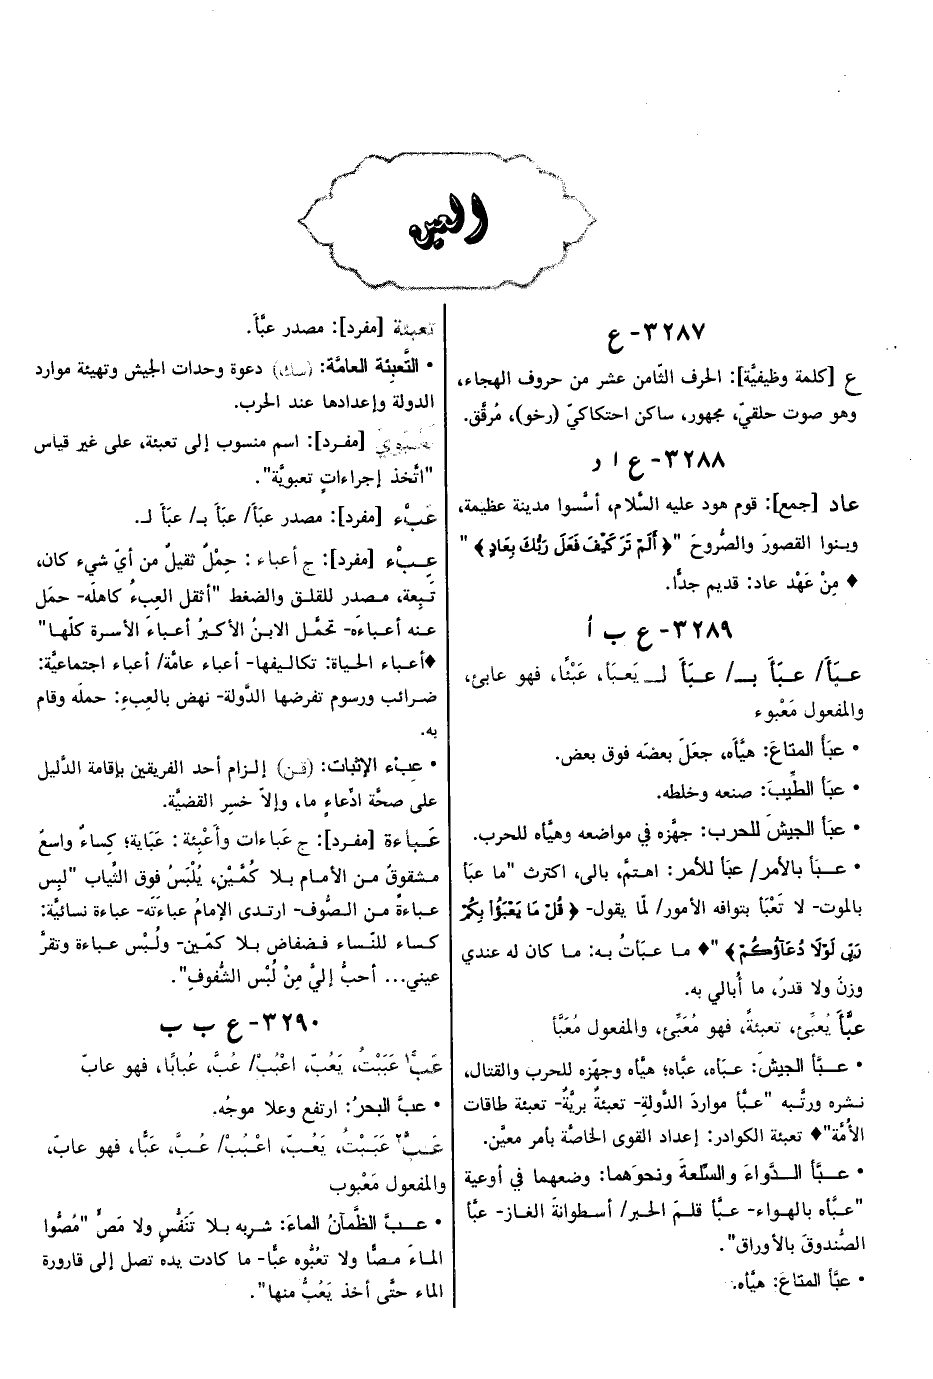 العين
٣٢٨٧- ع
ع [كلمة وظيفيَّة]: الحرف الثّامن عشر من حروف الهجاء،
وهو صوت حلقيّ، مجهور، ساكن احتكاكيّ (رخو)، مُرقَّق.
٣٢٨٨- ع ا د
عاد [جمع]: قوم هود عليه السَّلام، أسَّسوا مدينة عظيمة،
وبنوا القصورَ والصُّروحَ "﴿أَلَمْ تَرَ كَيْفَ فَعَلَ رَبُّكَ بِعَادٍ﴾"
♦ مِنْ عَهْد عاد: قديم جدًّا.
٣٢٨٩- ع ب أ
عبَأَ/ عبَأَ بـ/ عبَأَ لـ يَعبَأ، عَبْئًا، فهو عابئ،
والمفعول مَعْبوء
• عبَأَ المتاعَ: هيَّأه، جعَلَ بعضَه فوق بعض.
• عبَأ الطِّيبَ: صنعه وخلطه.
• عبَأ الجيشَ للحرب: جهَّزه في مواضعه وهيَّأه للحرب.
• عبَأ بالأمر/ عبَأ للأمر: اهتمَّ، بالى، اكترث "ما عبَأ
بالموت- لا تَعْبَأ بتوافه الأمور/ لمّا يقول- ﴿قُلْ مَا يَعْبَؤُا بِكُمْ
رَبِّي لَوْلَا دُعَآؤُكُمْ﴾"♦ ما عبَأتُ به: ما كان له عندي
وزنُ ولا قدرُ، ما أُبالي به.
عبَّأَ يُعبِّئ، تعبئةً، فهو مُعَبِّئ، والمفعول مُعَبَّأ
• عبَّأ الجيشَ: عبَأه، عبّاه؛ هيَّأه وجهَّزه للحرب والقتال،
نشره ورتَّبه "عبَّأ مواردَ الدَّولةِ- تعبئةٌ بريَّةٌ- تعبئة طاقات
الأُمَّة"♦ تعبئة الكوادر: إعداد القوى الخاصَّة بأمر معيَّن.
• عبَّأ الدَّواءَ والسِّلعةَ ونحوَهما: وضعهما في أوعية
"عبَّأه بالهواء- عبَّأ قلمَ الحبر/ أسطوانةَ الغاز- عبَّأ
الصُّندوقَ بالأوراق".
• عبَّأ المتاعَ: هيَّأه.
تعبئة [مفرد]: مصدر عبَّأَ.
• التَّعبِئة العامَّة: (سك) دعوة وحدات الجيش وتهيئة موارد
الدولة وإعدادها عند الحرب.
تَعْبَويّ [مفرد]: اسم منسوب إلى تعبئة، على غير قياس
"اتَّخذ إجراءاتٍ تعبويَّة".
عَبْء [مفرد]: مصدر عبَأَ/ عبَأَ بـ/ عبَأَ لـ.
عِبْء [مفرد]: ج أعباء: حِمْلٌ ثقيلٌ من أيّ شيء كان،
تَبِعة، مصدر للقلق والضغط "أثقل العِبءُ كاهلَه- حمَل
عنه أعباءَه- تحمَّل الابنُ الأكبرُ أعباءَ الأسرة كلّها"
♦أعباء الحياة: تكاليفها- أعباء عامَّة/ أعباء اجتماعيَّة:
ضرائب ورسوم تفرضها الدَّولة- نهض بالعِبءِ: حملَه وقام
به.
• عِبْء الإثبات: (قن) إلزام أحد الفريقين بإقامة الدَّليل
على صحَّة ادِّعاءٍ ما، وإلاّ خسِر القضيَّة.
عَباءة [مفرد]: ج عَباءات وأَعْبِئة: عَبَاية؛ كِساءٌ واسعٌ
مشقوقٌ من الأمام بلا كُمَّيْنِ، يُلْبَسُ فوق الثِّياب "لبِس
عباءةً من الصُّوف- ارتدى الإمامُ عباءَتَه- عباءة نسائيَّة:
كساء للنّساء فضفاض بلا كمّين- ولُبْس عباءة وتقرَّ
عيني... أحبُّ إليَّ مِنْ لُبْس الشُّفوفِ".
٣٢٩٠- ع ب ب
عَبَّ١ عَبَبْتُ، يَعُبّ، اعْبُبْ/ عُبَّ، عُبابًا، فهو عابّ
• عبَّ البحرُ: ارتفع وعلا موجُه.
عَبَّ٢ عَبَبْتُ، يَعُبّ، اعْبُبْ/ عُبَّ، عَبًّا، فهو عابّ،
والمفعول مَعْبوب
• عبَّ الظَّمآنُ الماءَ: شربه بلا تَنَفُّسٍ ولا مَصٍّ "مُصُّوا
الماءَ مصًّا ولا تعُبُّوه عبًّا- ما كادت يده تصل إلى قارورة
الماء حتَّى أخذ يَعُبُّ منها".